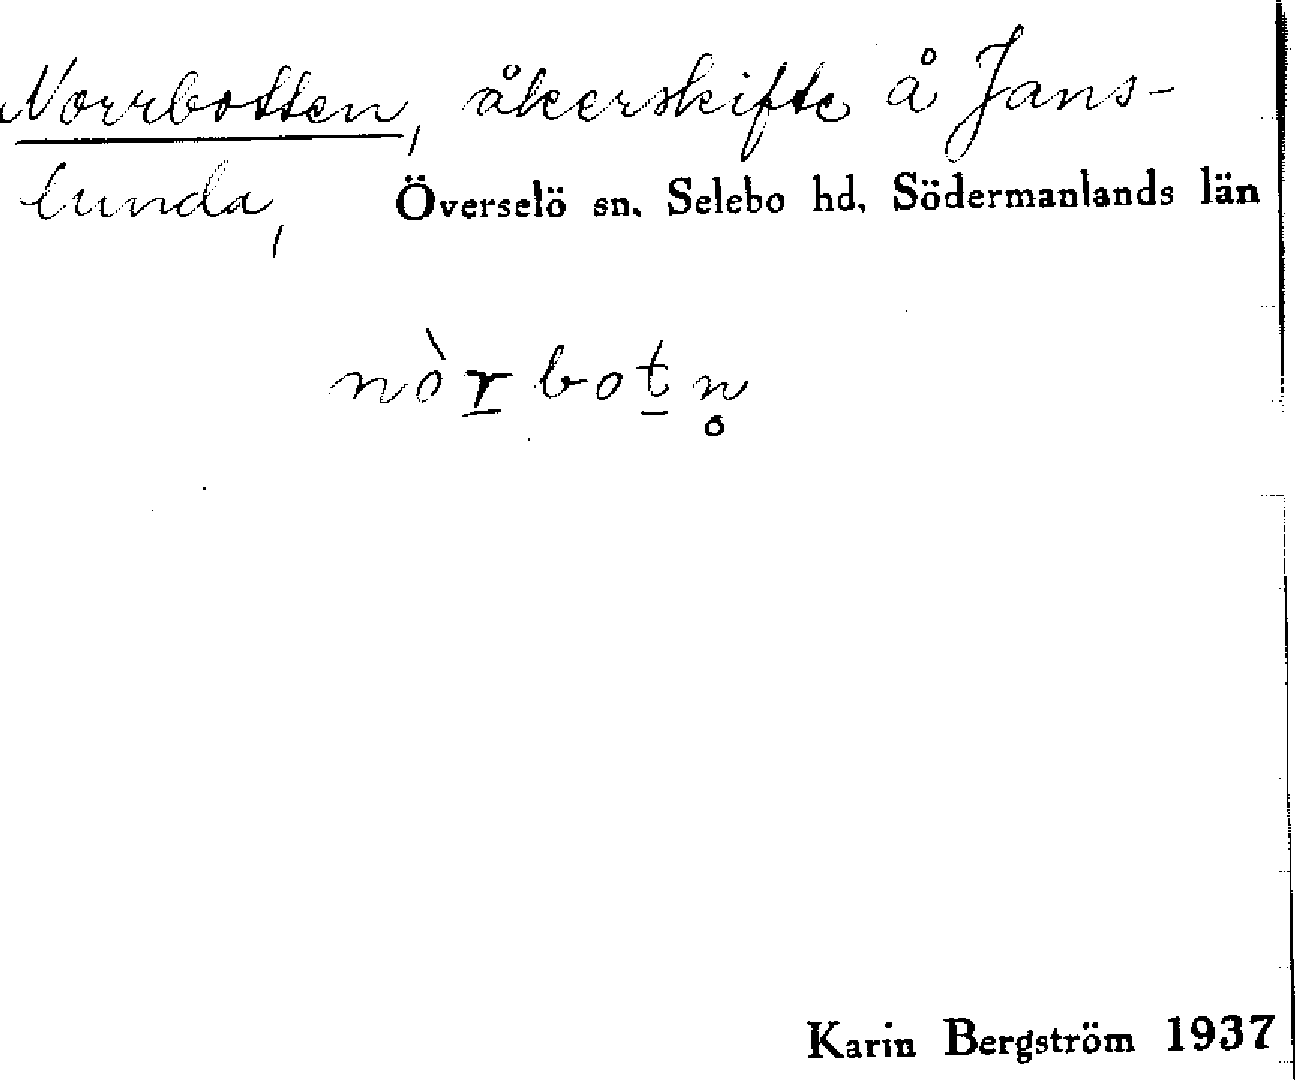 Norrbotten, åkerskifte å Jans-
lunda, Överselö sn. Selebo hd. Södermanlands län
nòr̲bot̲n̥
Karin Bergström 1937